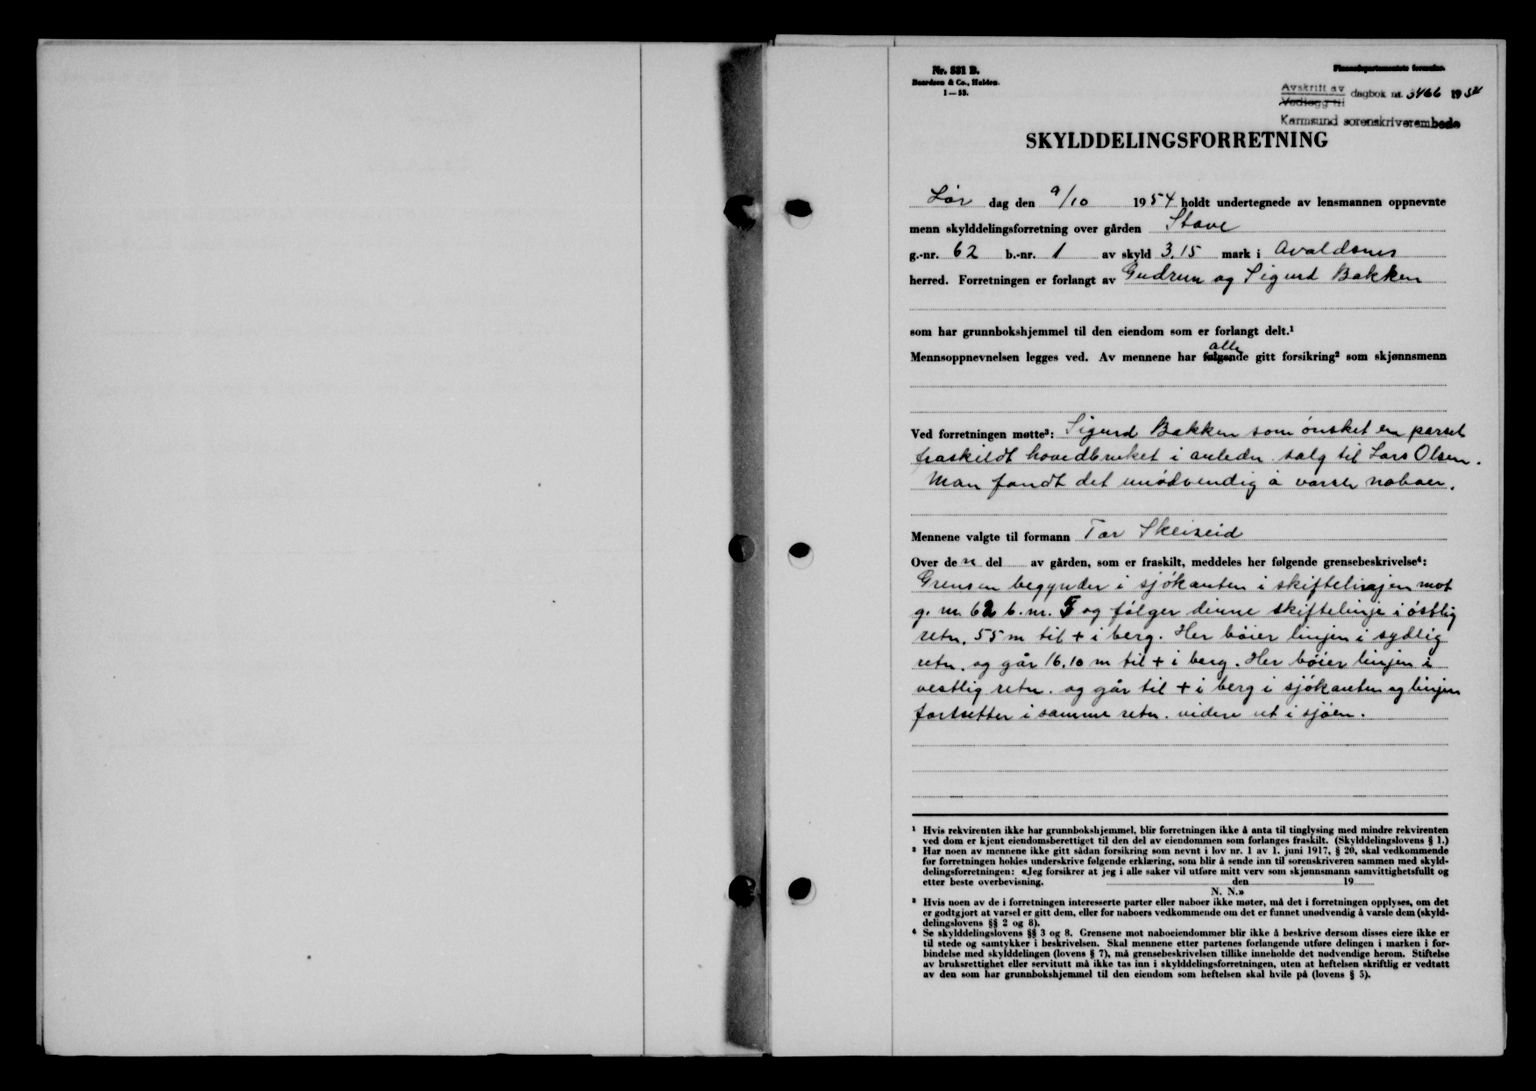 Nr. 531 B.
Baardsen & Co., Halden.
1—53.
Finansdepartementets formular.
Avskrift av
Vedlegg til
dagbok nr. 3466 1954
Karmsund sorenskriverembede
SKYLDDELINGSFORRETNING
Lør dag den 9/10 1954 holdt undertegnede av lensmannen oppnevnte
menn skylddelingsforretning over gården Stave
g.-nr. 62 b.-nr. 1 av skyld 3.15 mark i Avaldsnes
herred. Forretningen er forlangt av Gudrun og Sigurd Bakken
som har grunnbokshjemmel til den eiendom som er forlangt delt.¹
alle
Mennsoppnevnelsen legges ved. Av mennene har følgende gitt forsikring² som skjønnsmenn
Ved forretningen møtte³: Sigurd Bakken som ønsket en parsel
fraskildt hovedbruket i anledn. salg til Lars Olsen.
Man fandt det unødvendig å varsle naboer.
Mennene valgte til formann Tor Skeiseid
Over den del av gården, som er fraskilt, meddeles her følgende grensebeskrivelse⁴:
Grensen begynder i sjøkanten i skiftelinjen mot
g. nr. 62 b. nr. 5 og følger denne skiftelinje i østlig
retn. 55 m til + i berg. Her bøier linjen i sydlig
retn. og går 16,10 m til + i berg. Her bøier linjen i
vestlig retn. og går til + i berg i sjøkanten og linjen
fortsetter i samme retn. videre ut i sjøen.
¹ Hvis rekvirenten ikke har grunnbokshjemmel, blir forretningen ikke å anta til tinglysing med mindre rekvirenten
ved dom er kjent eiendomsberettiget til den del av eiendommen som forlanges fraskilt. (Skylddelingslovens § 1.)
² Har noen av mennene ikke gitt sådan forsikring som nevnt i lov nr. 1 av 1. juni 1917, § 20, skal vedkommende
før forretningen holdes underskrive følgende erklæring, som blir å sende inn til sorenskriveren sammen med skyld-
delingsforretningen: «Jeg forsikrer at jeg i alle saker vil utføre mitt verv som skjønnsmann samvittighetsfullt og
etter beste overbevisning. den 19
N. N.»
³ Hvis noen av de i forretningen interesserte parter eller naboer ikke møter, må det i forretningen opplyses, om det
er godtgjort at varsel er gitt dem, eller for naboers vedkommende om det er funnet unødvendig å varsle dem (skyld-
delingslovens §§ 2 og 8).
⁴ Se skylddelingslovens §§ 3 og 8. Grensene mot naboeiendommer blir ikke å beskrive dersom disses eiere ikke er
til stede og samtykker i beskrivelsen. Skal mennene etter partenes forlangende utføre delingen i marken i for-
bindelse med skylddelingen (lovens § 7), må grensebeskrivelsen tillike inneholde det nødvendige herom. Stiftelse
av bruksrettighet eller servitutt må ikke tas inn i skylddelingsforretningen, uten at heftelsen skriftlig er vedtatt
av den som har grunnbokshjemmel til den eiendom som heftelsen skal hvile på (lovens § 5).